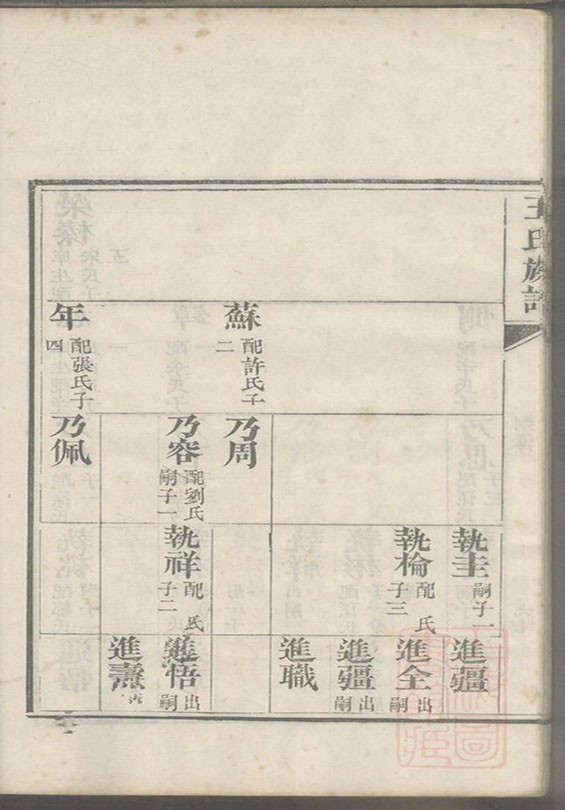 王氏族譜
執圭 嗣子一
進疆
執棆 配 氏
子三
進全 出
嗣
進疆 出
嗣
進職
蘇 配許氏子
二
乃周
乃容 配劉氏
嗣子一
執祥 配 氏
子二
進悟 出
嗣
進燾
年 配張氏子
四
乃佩